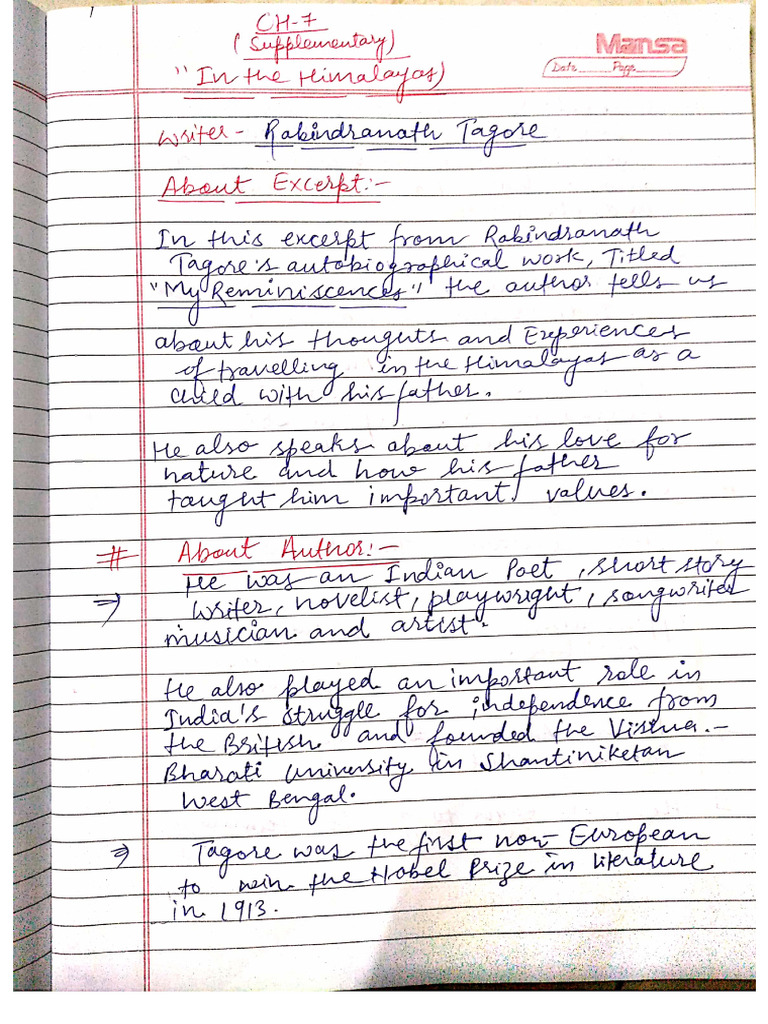 CH-7
(Supplementary)
Mansa
"In the Himalayas)
Date Page
Writer - Rabindranath Tagore
About Excerpt:-
In this excerpt from Rabindranath
Tagore's autobiographical work, Titled
"My Reminiscences" the author tells us
about his thoughts and Experiences
of travelling in the Himalayas as a
child with his father.
He also speaks about his love for
nature and how his father
taught him important values.
# About Author:-
He was an Indian Poet, short story
⇒ writer, novelist, playwright, songwriter
musician and artist.
He also played an important role in
India's struggle for independence from
the British and founded the Vishva.-
Bharati University in Shantiniketan
West Bengal.
⇒ Tagore was the first non-European
to win the Nobel Prize in literature
in 1913.